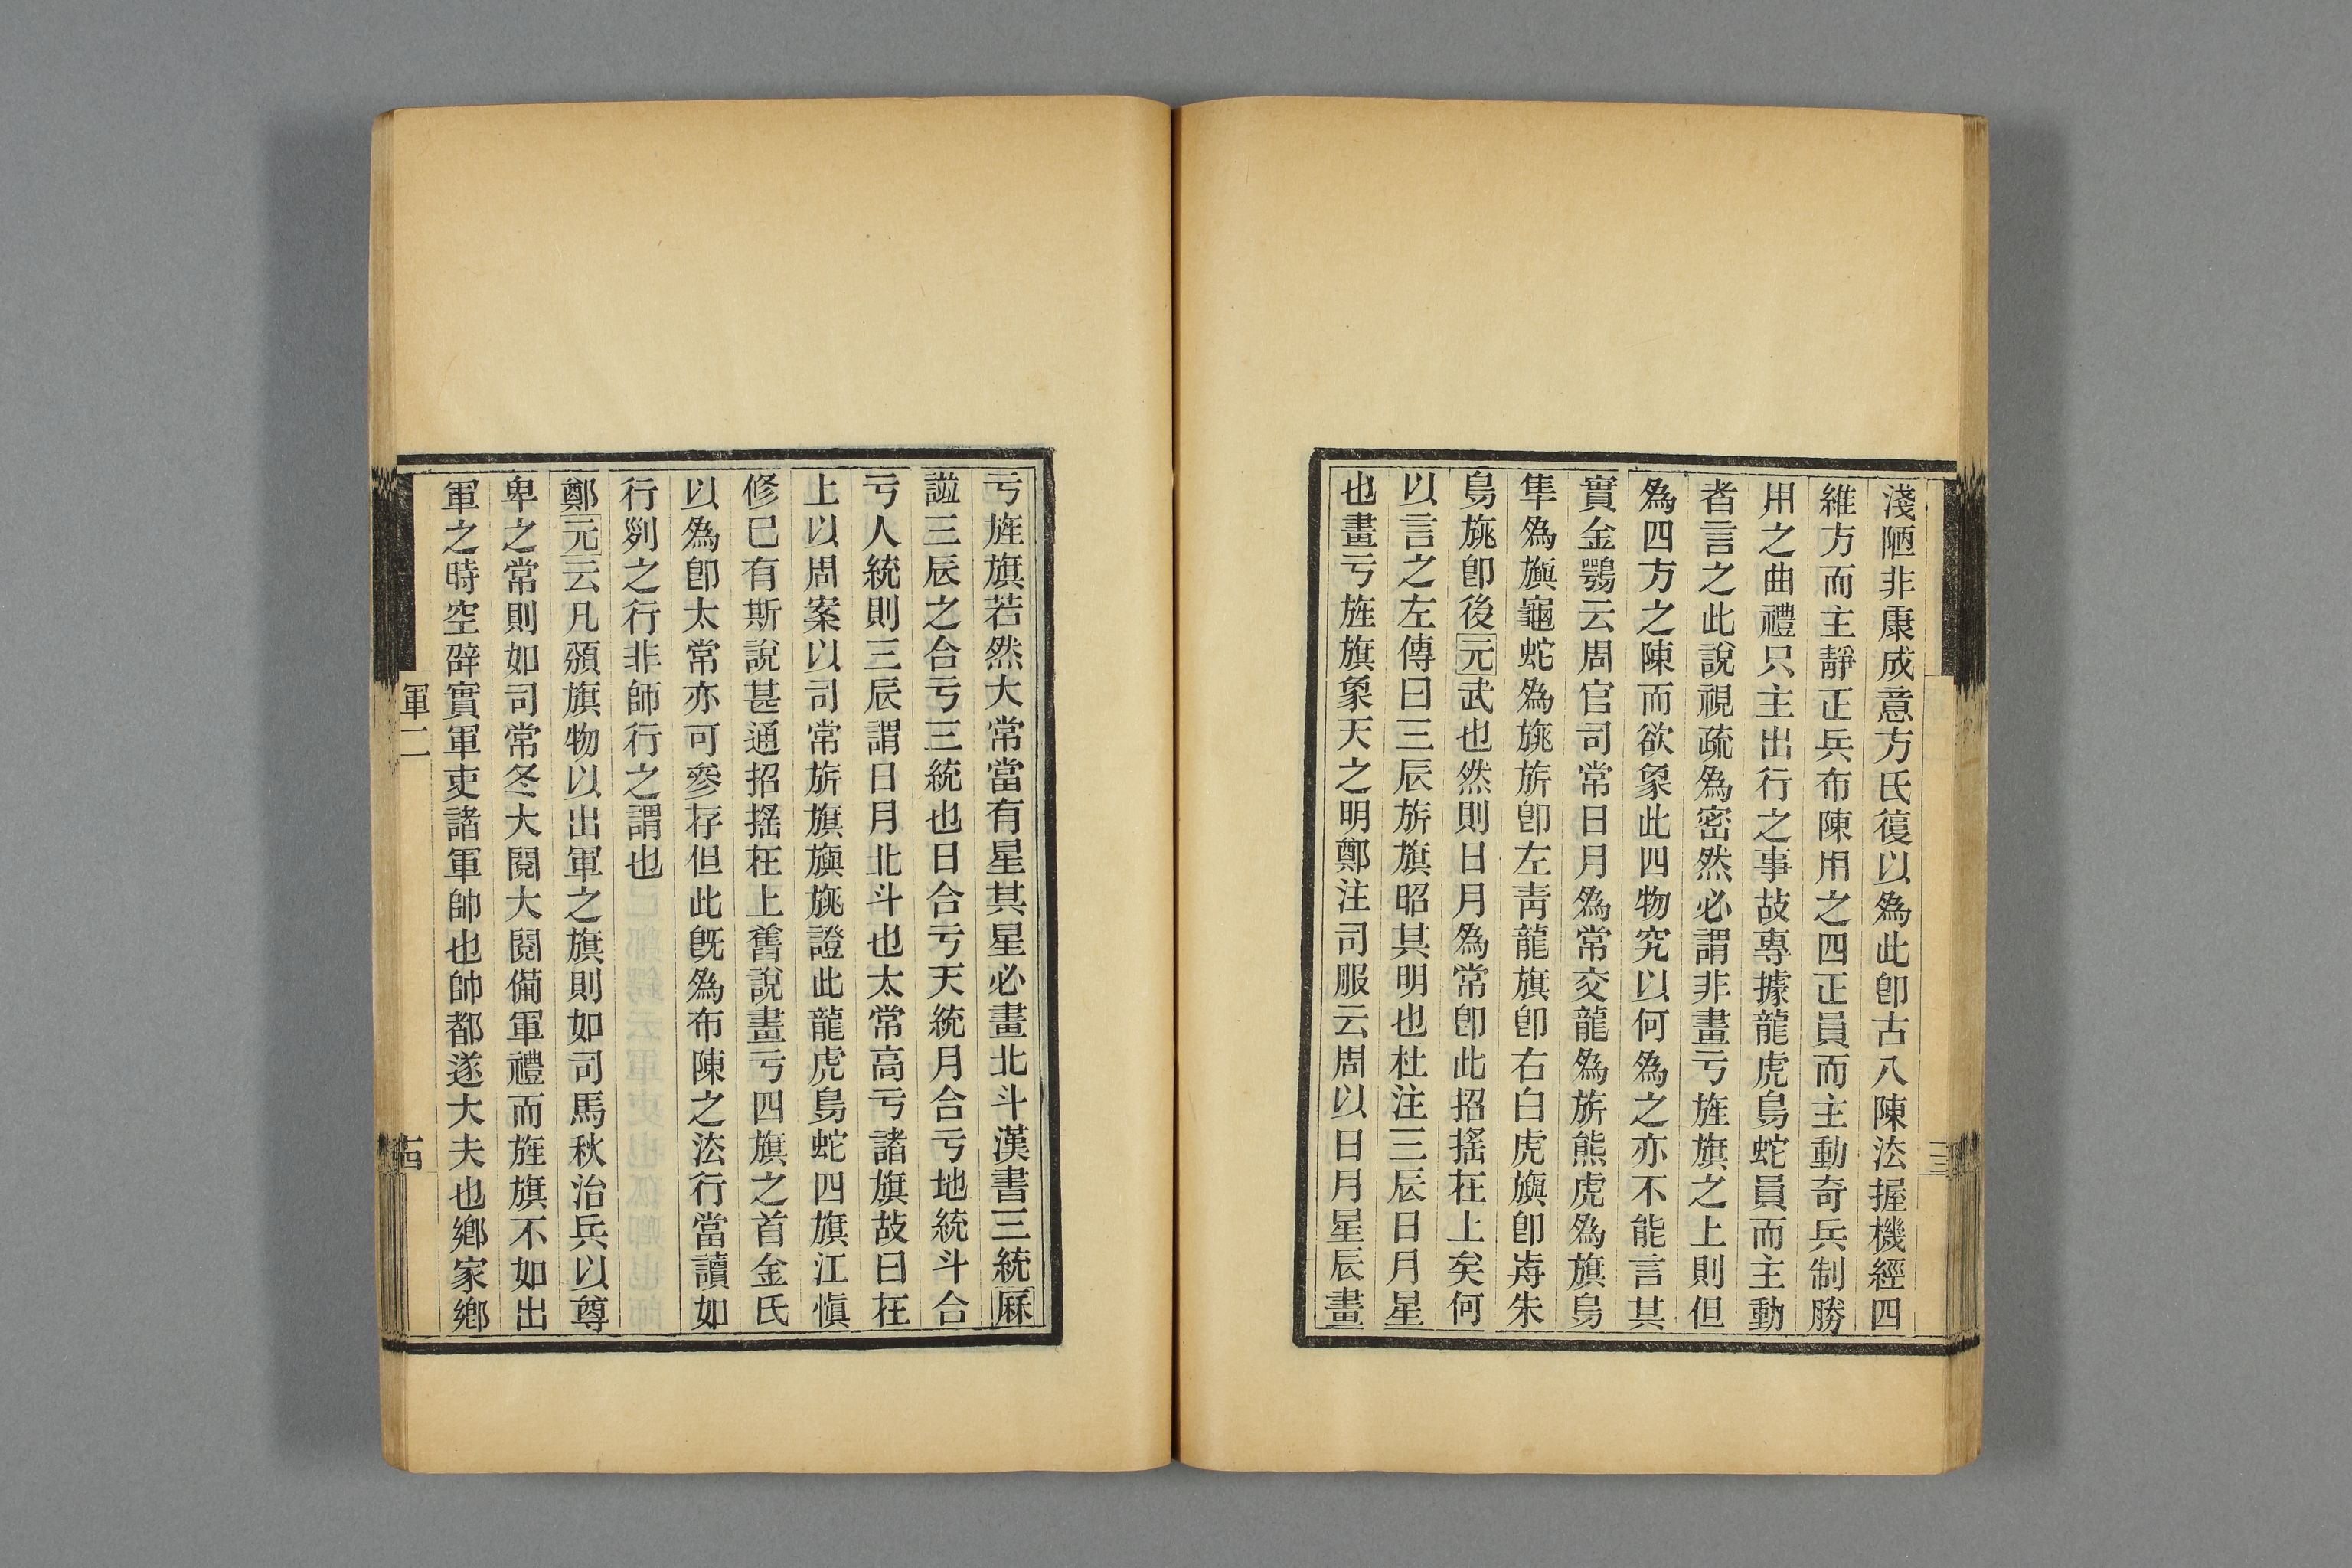 淺陋非康成意方氏復以為此卽古八陳法握機經四
維方而主靜正兵布陳用之四正員而主動奇兵制勝
用之曲禮只主出行之事故專據龍虎鳥蛇員而主動
者言之此說視疏為密然必謂非畫亏旌旗之上則但
為四方之陳而欲象此四物究以何為之亦不能言其
實金鶚云周官司常日月為常交龍為旂熊虎為旗鳥
隼為旟龜蛇為旐旂卽左靑龍旗卽右白虎旟卽歬朱
鳥旐卽後元武也然則日月為常卽此招搖在上矣何
以言之左傳曰三辰旂旗昭其明也杜注三辰日月星
也畫亏旌旗象天之明鄭注司服云周以日月星辰畫
三
亏旌旗若然大常當有星其星必畫北斗漢書三統厤
謚三辰之合亏三統也日合亏天統月合亏地統斗合
亏人統則三辰謂日月北斗也太常高亏諸旗故曰在
上以周案以司常旂旗旟旐證此龍虎鳥蛇四旗江愼
修巳有斯說甚通招搖在上舊說畫亏四旗之首金氏
以為卽太常亦可參存但此旣為布陳之法行當讀如
行列之行非師行之謂也
鄭元云凡頒旗物以出軍之旗則如司馬秋治兵以尊
卑之常則如司常冬大閱大閱備軍禮而旌旗不如出
軍之時空辟實軍吏諸軍帥也帥都遂大夫也鄉家鄉
軍二
十四